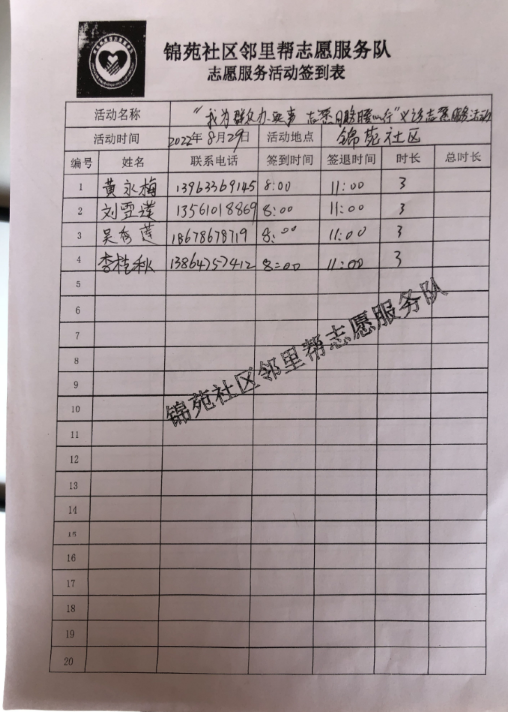 锦苑社区邻里帮志愿服务队
志愿服务活动签到表
活动名称 "我为群众办实事 志愿日 义诊志愿服务活动
活动时间 2022年8月29日 活动地点 锦苑社区
编号 姓名 联系电话 签到时间 签退时间 时长 总时长
1 黄永梅 13963369145 8:00 11:00 3
2 刘 莲 13561018869 8:00 11:00 3
3 吴 莲 18678678719 8:00 11:00 3
4 李桂秋 13864757412 8:00 11:00 3
5
6
7
8
9
10
11
12
13
14
15
16
17
18
19
20
锦苑社区邻里帮志愿服务队